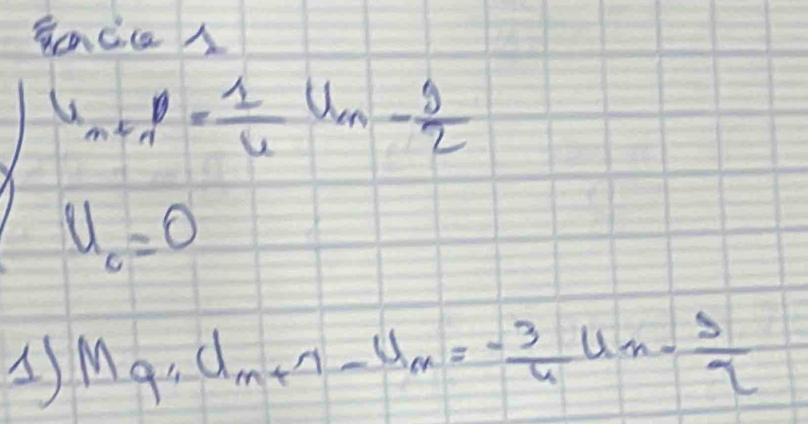 Exercice 1
U_{n+1} = \frac{1}{4} U_n - \frac{9}{2}
U_0 = 0
1) Mq. U_{n+1} - U_n = -\frac{3}{4} U_n - \frac{9}{2}